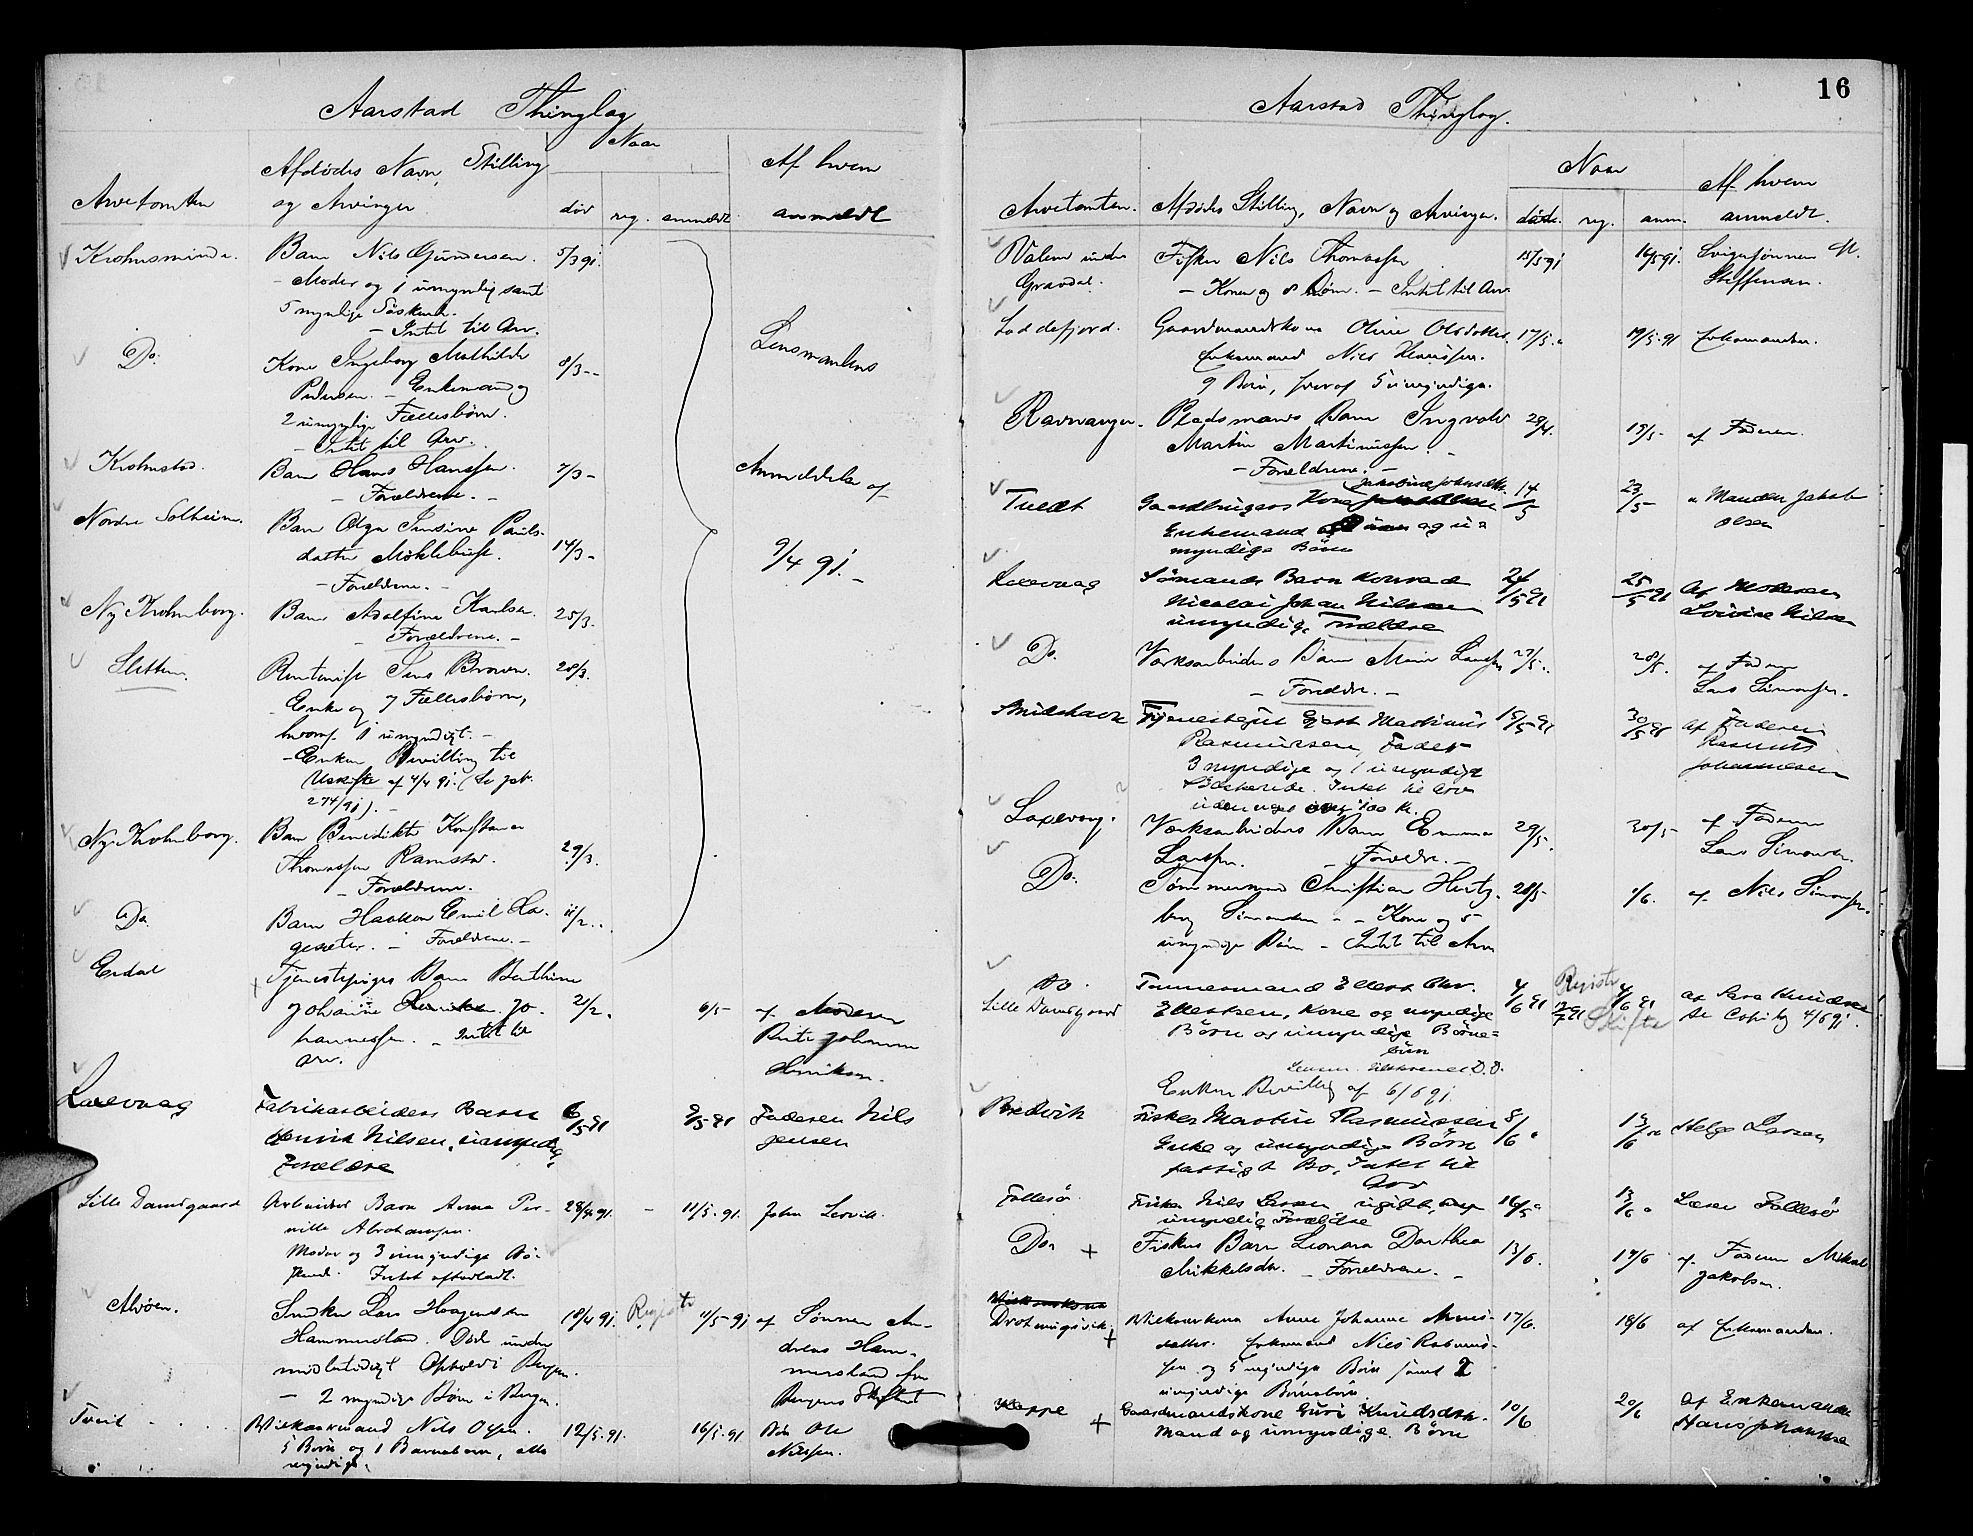 Aarstad Thinglag
Naar
Arvetomten
Afdødes Navn, Stilling og Arvinger
død
reg.
anmeldt
Af hvem anmeldt
Krohnsminde.
Barn Nils Gundersen.
5/3 91.
- Moder og 1 umyndig samt
5 myndige Søskende.
- Intet til Arv.
Do.
Kone Ingeborg Mathilde
8/3 --
Pedersen. - Enkemand og
2 umyndige Fællesbørn.
- Intet til Arv.
Lensmandens
Krohnstad.
Barn Hans Hanssen.
7/3 -
- Forældrene. -
Anmeldelse af
Nordre Solheim.
Barn Olga Jensine Pauls-
datter Møklebust.
14/3 -
- Forældrene. -
9/4 91. -
Ny Krohnborg.
Barn Adolfine Karlsen.
25/3.
- Forældrene. -
Sletten.
Rentenist Jens Brown.
28/3.
Enke og 7 Fællesbørn,
hvoraf 1 umyndigt. -
- Enken Bevilling til
Uskifte af 4/4 91. (Se Job.
274/91). -
Ny Krohnborg.
Barn Benedikte Konstance
Thomassen Ramstad.
29/3.
- Forældrene.
Do.
Barn Haakon Emil
11/2 ..
- Forældrene. -
Erdal
Tjenestepiges Barn Berthine
Johanne Jo-
21/2.
6/5 -
af Moderen
hannessen. - Intet til
Arv.
Johanne
Henriksen.
Laxevaag
Fabrikarbeiders Barn
6/5 91
9/5 91
Faderen Nils
Henrik Nilsen, umyndig,
Jensen
Forældre
Lille Damsgaard
Arbeider Barn Anna Per-
28/4 91.
-
11/5. 91.
John
nille Abrahamsen.
Moder og 3 umyndige Sø-
skende. Intet efterladt.
Alvøen.
Snedker Lars Haagensen
18/4 91.
Registr.
11/5 - 91
af Sønnen An-
Hammersland. Død under
dreas Ham-
midlertidigt Ophold i Bergen.
mersland fra
- 2 myndige Børn i Bergen.
Bergens Skifteret
Tveit
Vilkaarsmand Nils Olsen.
12/5. 91.
16/5. 91
Ole
5 Børn og 1 Barnebarn, alle
Nilssen.
myndige.
16
Aarstad Thinglag.
Naar
Arvetomten.
Afdødes Stilling, Navn og Arvinger.
døde.
reg.
anm.
Af hvem anmeldt.
Valen under
Fisker Nils Thomassen
15/5 91
16/5 91.
Svigersønnen M.
Gravdal.
- Kone og 8 Børn. - Intet til Arv
Steffensen.
Loddefjord.
Gaardmandskone Oline Olsdatter.
17/5.
19/5. 91
Enkemanden.
Enkemand Nils Hanssen.
9 Børn, hvoraf 5 umyndige.
Ravnanger.
Pladsmands Barn Ingvald
29/4.
15/5 -
af Faderen.
Martin Martinussen.
- Forældrene. -
Jakobine Johnsdtr.
Tvedt
Gaardbrugers Kone
14/5
23/5 -
Manden Jakob
Enkemand og u-
Olsen
myndige Børn
Laxevaag
Sømands Barn Konrad
24/5 91
25/5 91
Af Moderen
Nicolai Johan Nilssen
Lovise Nilsen
umyndig, Forældre
Do.
Værksarbeiders Barn Marie Larssen
27/5.
28/5.
af Faderen
- Forældre. -
Lars Simonsen.
Tjenestegut Gjert Martinus
15/5 91
30/5 91
af Faderen
Rasmussen, Fader
Rasmus
3 myndige og 1 umyndigt
Johannesen
Søskende. Intet til Arv
uden noget over 100 Kr.
Laxevaag.
Værksarbeiders Barn Emma
29/5.
30/5
af Faderen
Larssen. - Forældre. -
Lars Simonsen.
Do.
Tømmermand Christian Hertz-
28/5
1/6.
af Nils Simonsen.
berg Simonsen - - Kone og 5
umyndige Børn - Intet til Arv
Do.
Lille Damsgaard
Tømmermand Ellert Chr.
4/6 91
Registr
Skifte
4/6 91
af Lars Knudsen
Ellertsen, Kone og myndige
se Copibog 4/6 91.
Børn og umyndige Børne-
børn
Enken Bevilling af 6/6 91
Bredvik
Fisker Martin Rasmussen
8/6
13/6
Helge Larsen
Enke og umyndige Børn
fattigt Bo, Intet til
Arv
Follesø
Fisker Nils Larsen ugift,
16/5
13/6
Lars Follesø
umyndig Forældre
Do.
+
Fiskers Barn Leonora Dorthea
13/6.
14/6
af Faderen Mikal
Mikkelsdtr. - Forældrene. -
Jakobsen.
Drotningsvik.
+
Vilkaarskone Anne Johanne Arnes-
17/6.
18/6
af Enkemanden.
datter. Enkemand Nils Rasmus-
sen og 5 myndige Børn samt 2
umyndige Børnebørn
Kleppe
+
Gaardmandskone Guri Knudsdtr.
10/6
20/6
af Enkemanden
Mand og umyndige Børn
Hans Johannesen